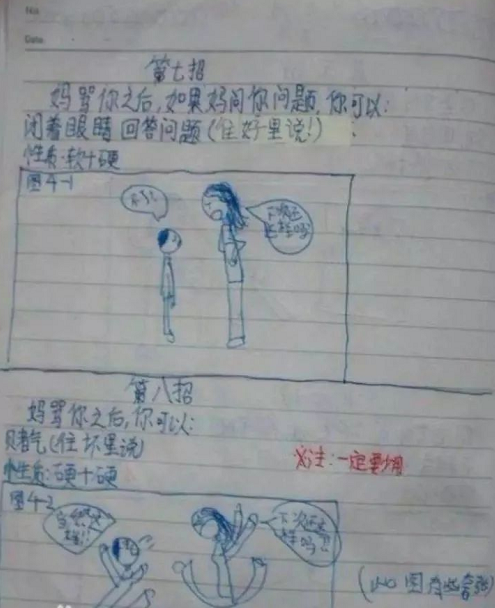 No.
Date.
第七招
妈骂你之后,如果妈问你问题,你可以:
闭着眼睛回答问题(往好里说!)
性质:软+硬
图4-1
不了!
下次还这样吗
第八招
妈骂你之后,你可以:
赌气(往坏里说)
性质:硬+硬
注:一定要少用
图4-2
当然这样!!
下次还这样吗??
图有些夸张)